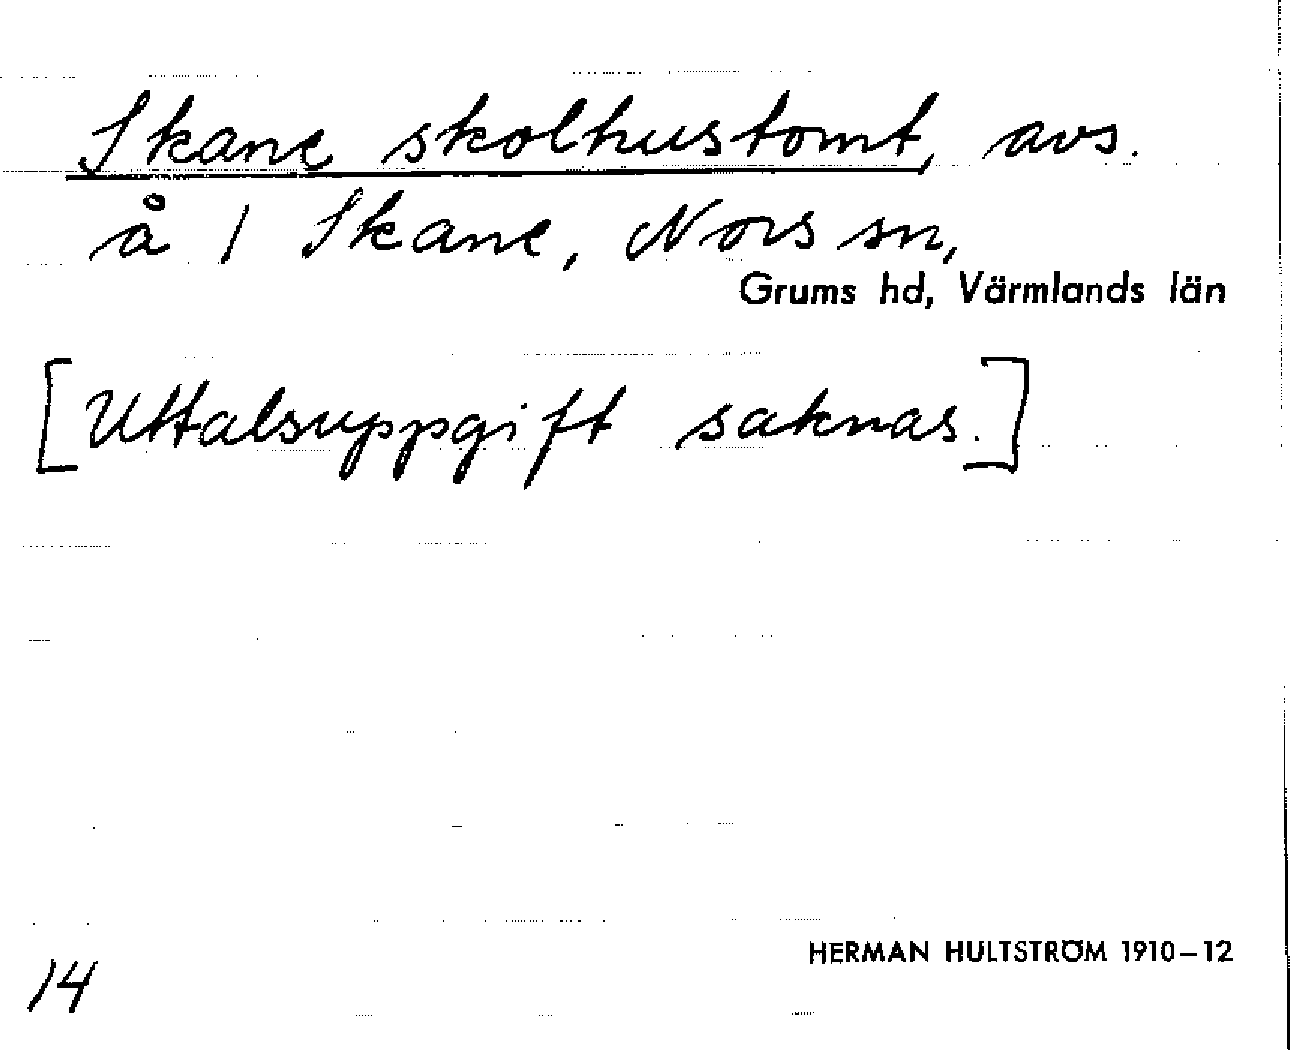 Skane skolhustomt, avs.
å 1 Skane, Nors sn,
Grums hd, Värmlands län
[Uttalsuppgift saknas.]
14
HERMAN HULTSTRÖM 1910–12